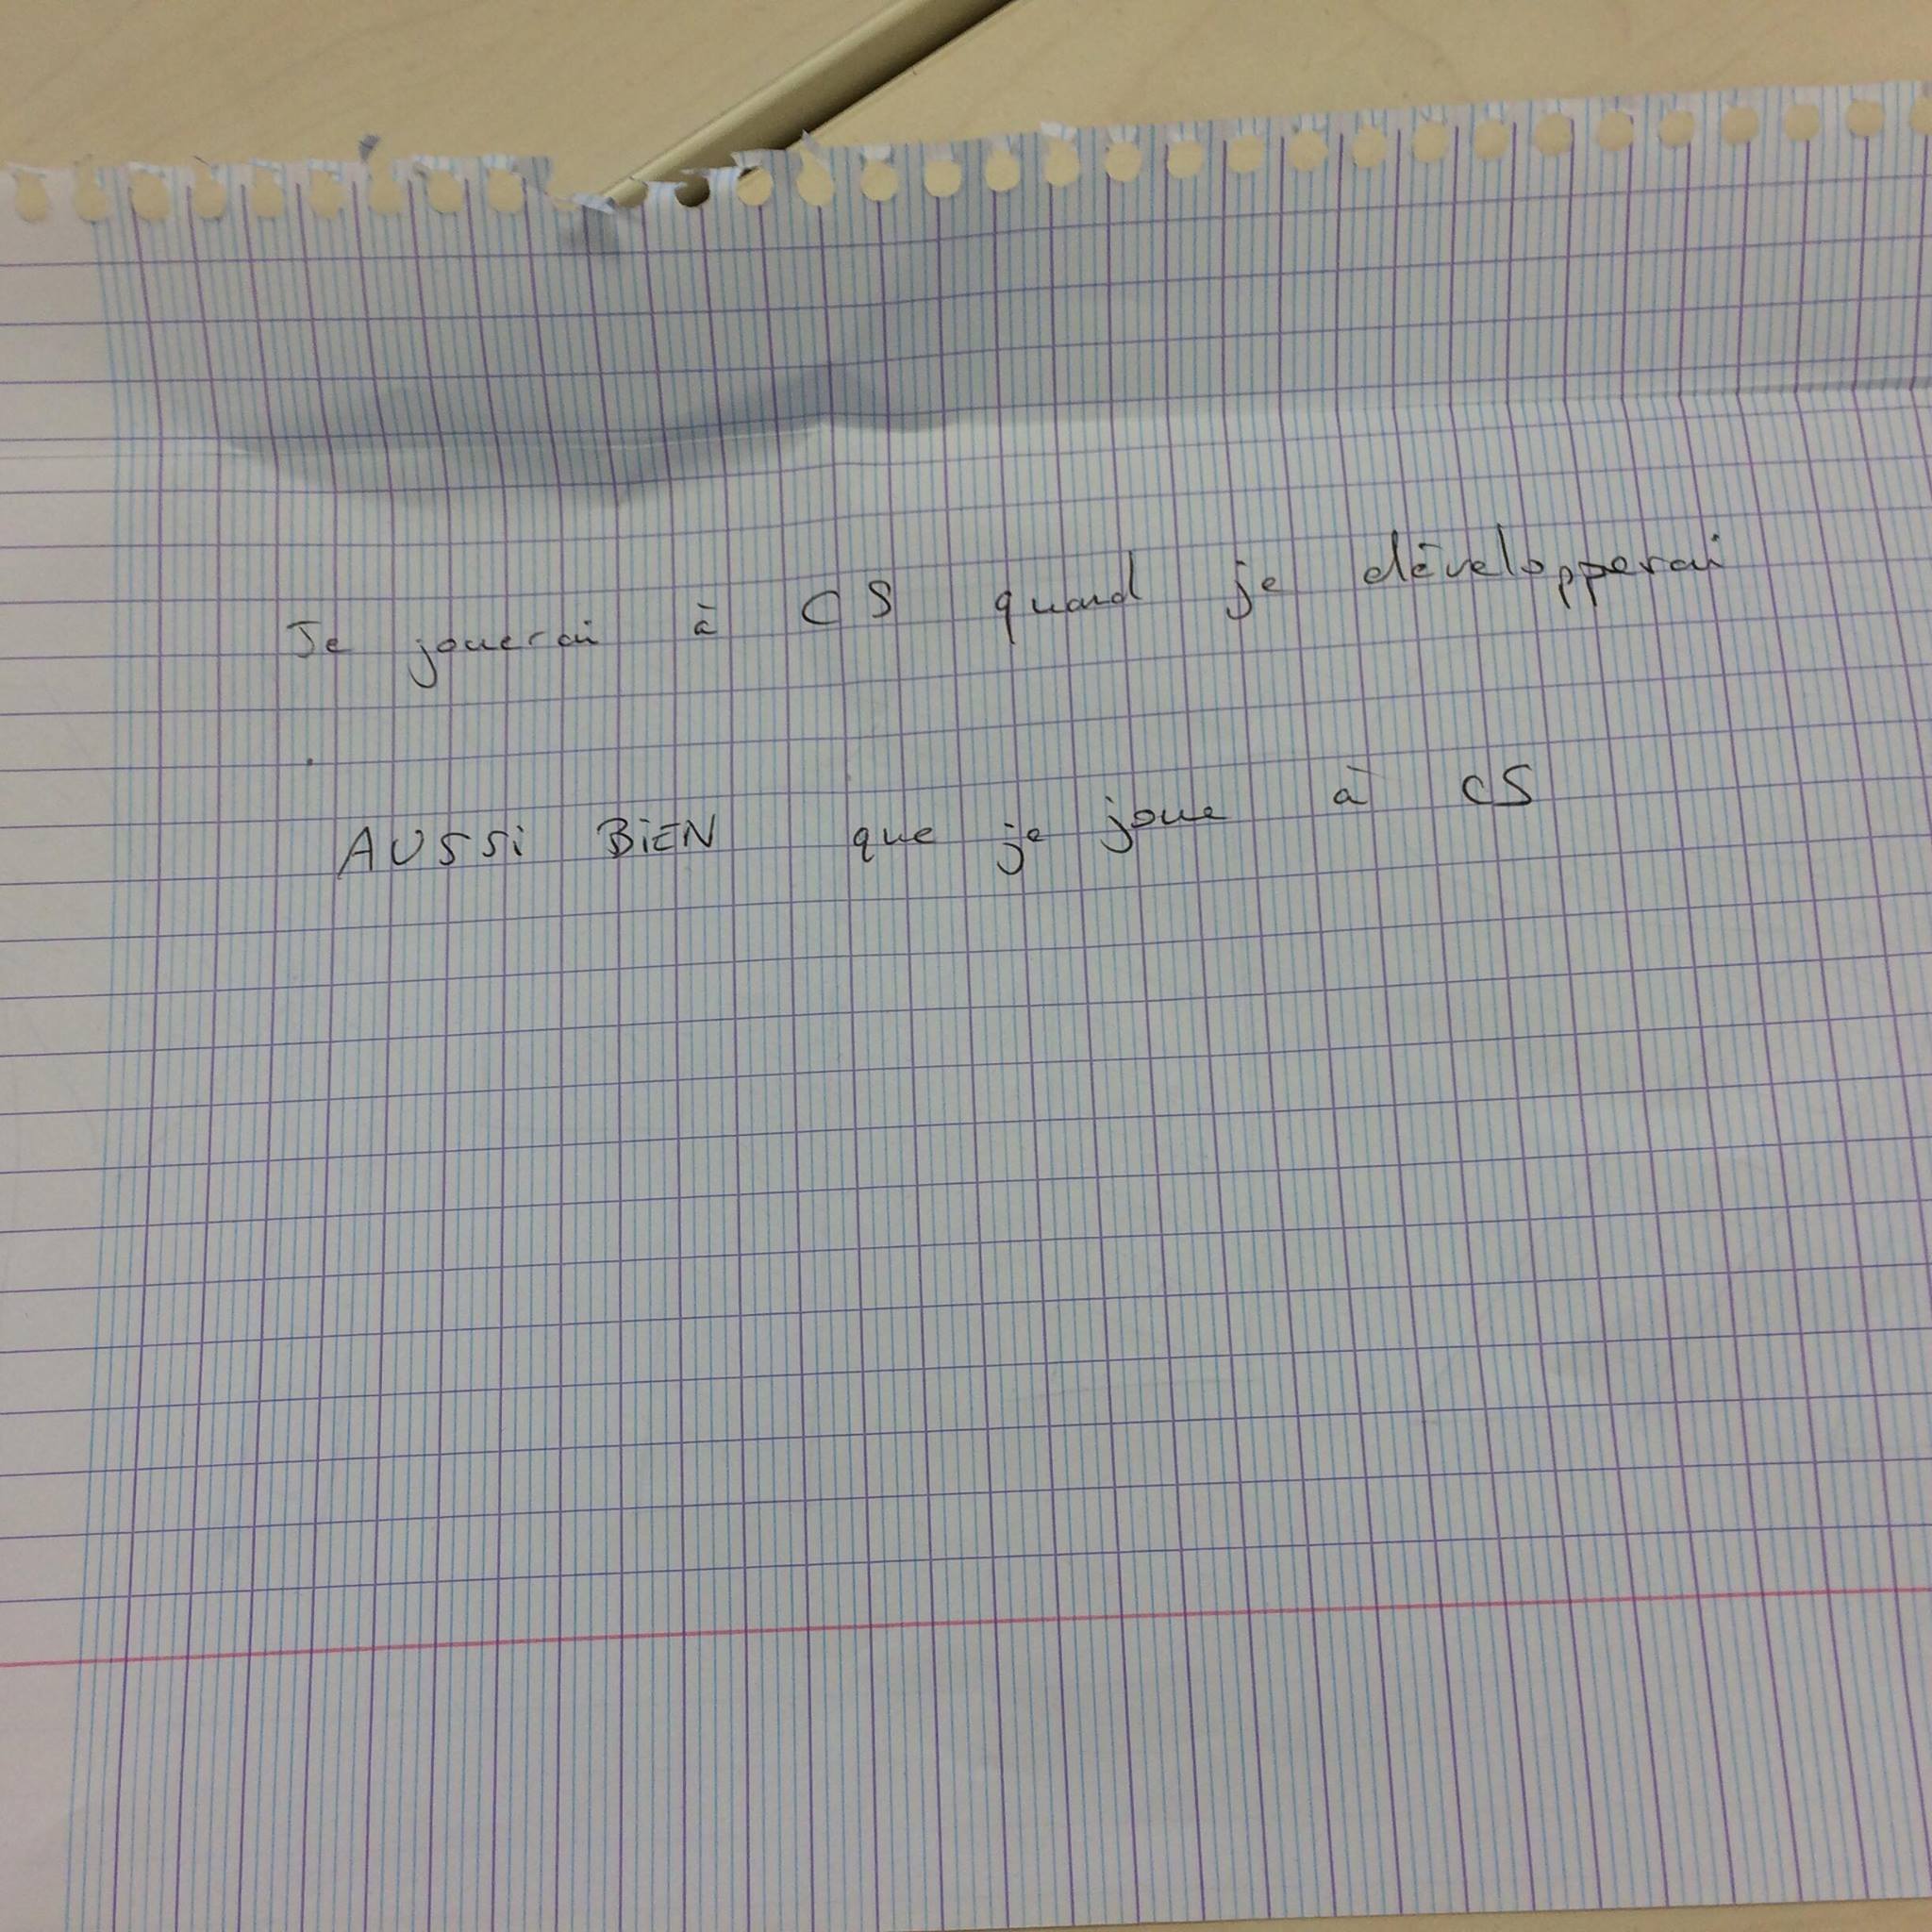 Je jouerai à CS quand je développerai
AUSSi BiEN que je joue à CS